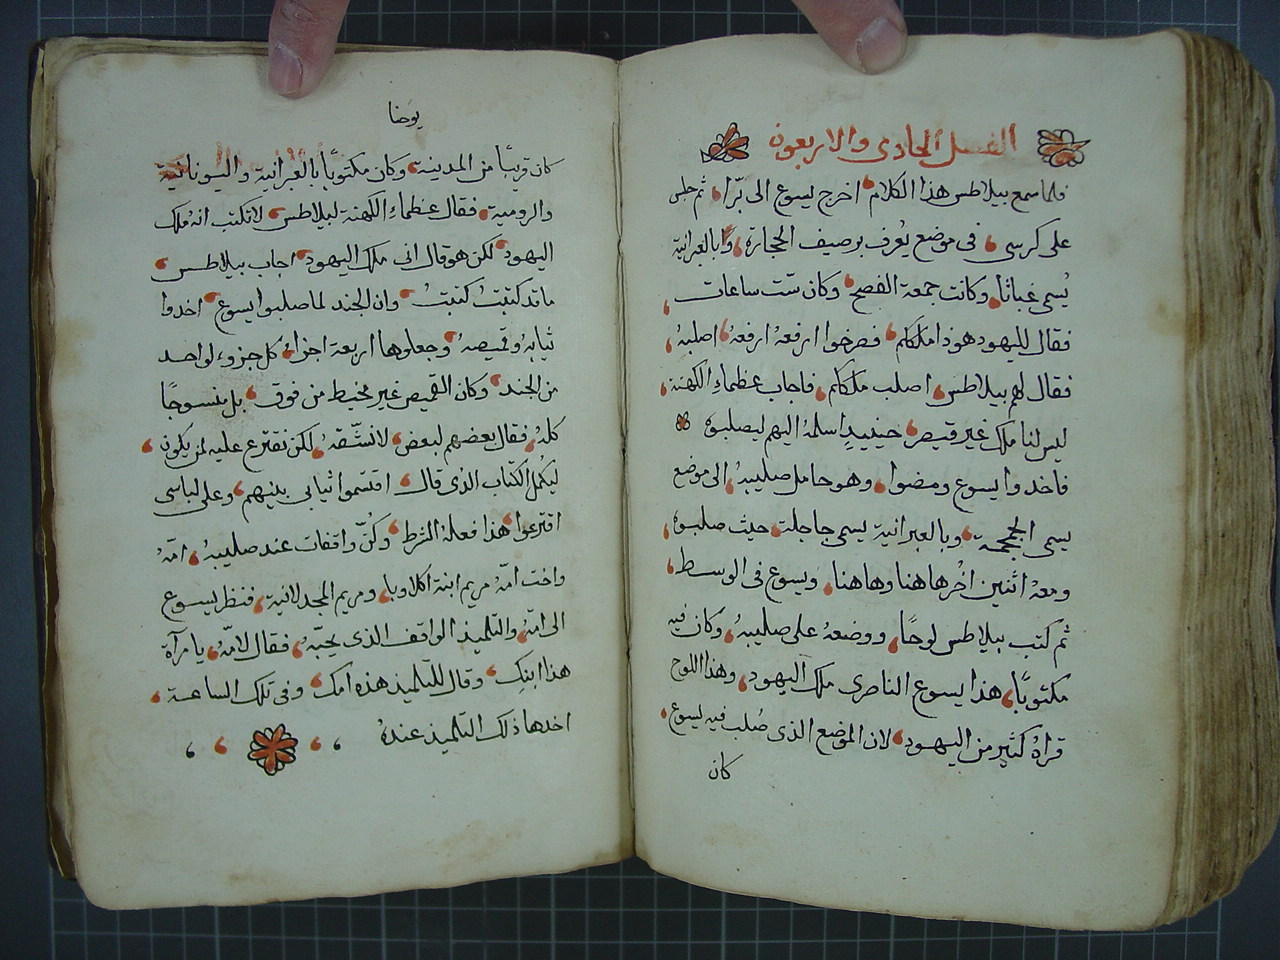 الفصل الحادى والاربعون
فلما سمع بيلاطس هذا الكلام اخرج يسوع الى برّا ثم جلس
على كرسى فى موضع يُعرف برصيف الحجارة وبالعبرانية
يُسمى غباثا وكانت جمعة الفصح وكان ستّ ساعات
فقال لليهود هوذا ملككم فصرخوا ارفعهُ ارفعهُ اصلبهُ
فقال لهم بيلاطس اصلب ملككم فاجاب عظماء الكهنة
ليس لنا ملك غير قيصر حينيدٍ اسلمهُ اليهم ليصلبوه
فاخدوا يسوع ومضوا وهو حامل صليبهُ الى موضع
يسمى الجمجمة وبالعبرانية يسمى جاجلة حيث صلبوه
ومعهُ اثنين اُخر هاهنا وهاهنا ويسوع فى الوسط
ثم كتب بيلاطس لوحًا ووضعهُ على صليبهُ وكان فيه
مكتوبًا هذا يسوع الناصرى ملك اليهود وهذا اللوح
قراهُ كثير من اليهود لان الموضع الذى صُلب فيه يسوع
كان
يوحنا
كان قريبًا من المدينه وكان مكتوبًا بالعبرانية واليونانية
والرومية فقال عظماء الكهنة لبيلاطس لا تكتب انهُ ملك
اليهود لكن هو قال انى ملك اليهود اجاب بيلاطس
ما قد كتبتُ كتبتُ وان الجند لما صلبوا يسوع اخدوا
ثيابهُ وقميصهُ وجعلوها اربعة اجزاءً كل جزوء لواحد
من الجند وكان القميص غير مخيط من فوق بل منسوجًا
كلهُ فقال بعضهم لبعض لا نشّقهُ لكن نقترع عليه لمن يكون
ليكمل الكتاب الذى قال اقتسموا ثيابى بينهم وعلى لباسى
اقترعوا هذا فعلهُ الشرط وكُنّ واقفات عند صليبهُ امّهُ
واخت امّهُ مريم ابنة اكلاوبا ومريم المجدلانية فنظر يسوع
الى امّهُ والتلميذ الواقف الذى يحبّهُ فقال لامّهُ يا مرآة
هذا ابنكِ وقال للتلميذ هذه امك وفى تلك الساعة
اخدها ذلك التلميذ عندهُ